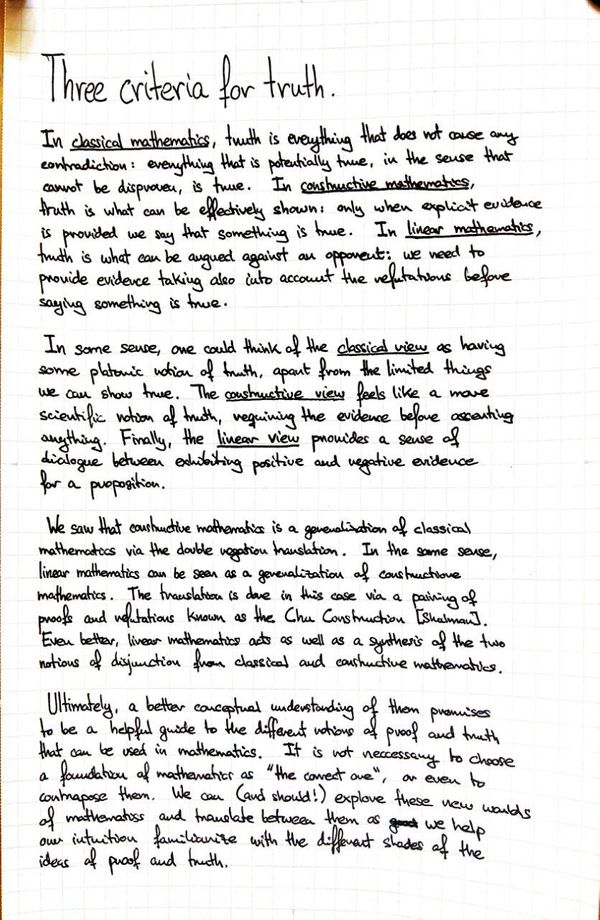 Three criteria for truth.
In classical mathematics, truth is everything that does not cause any
contradiction: everything that is potentially true, in the sense that
cannot be disproven, is true. In constructive mathematics,
truth is what can be effectively shown: only when explicit evidence
is provided we say that something is true. In linear mathematics,
truth is what can be argued against an opponent: we need to
provide evidence taking also into account the refutations before
saying something is true.
In some sense, one could think of the classical view as having
some platonic notion of truth, apart from the limited things
we can show true. The constructive view feels like a more
scientific notion of truth, requiring the evidence before asserting
anything. Finally, the linear view provides a sense of
dialogue between exhibiting positive and negative evidence
for a proposition.
We saw that constructive mathematics is a generalization of classical
mathematics via the double negation translation. In the same sense,
linear mathematics can be seen as a generalization of constructive
mathematics. The translation is done in this case via a pairing of
proofs and refutations known as the Chu Construction [Shulman].
Even better, linear mathematics acts as well as a synthesis of the two
notions of disjunction from classical and constructive mathematics.
Ultimately, a better conceptual understanding of them promises
to be a helpful guide to the different notions of proof and truth
that can be used in mathematics. It is not neccessary to choose
a foundation of mathematics as "the correct one", or even to
contrapose them. We can (and should!) explore these new worlds
of mathematics and translate between them as we help
our intuition familiarize with the different shades of the
ideas of proof and truth.